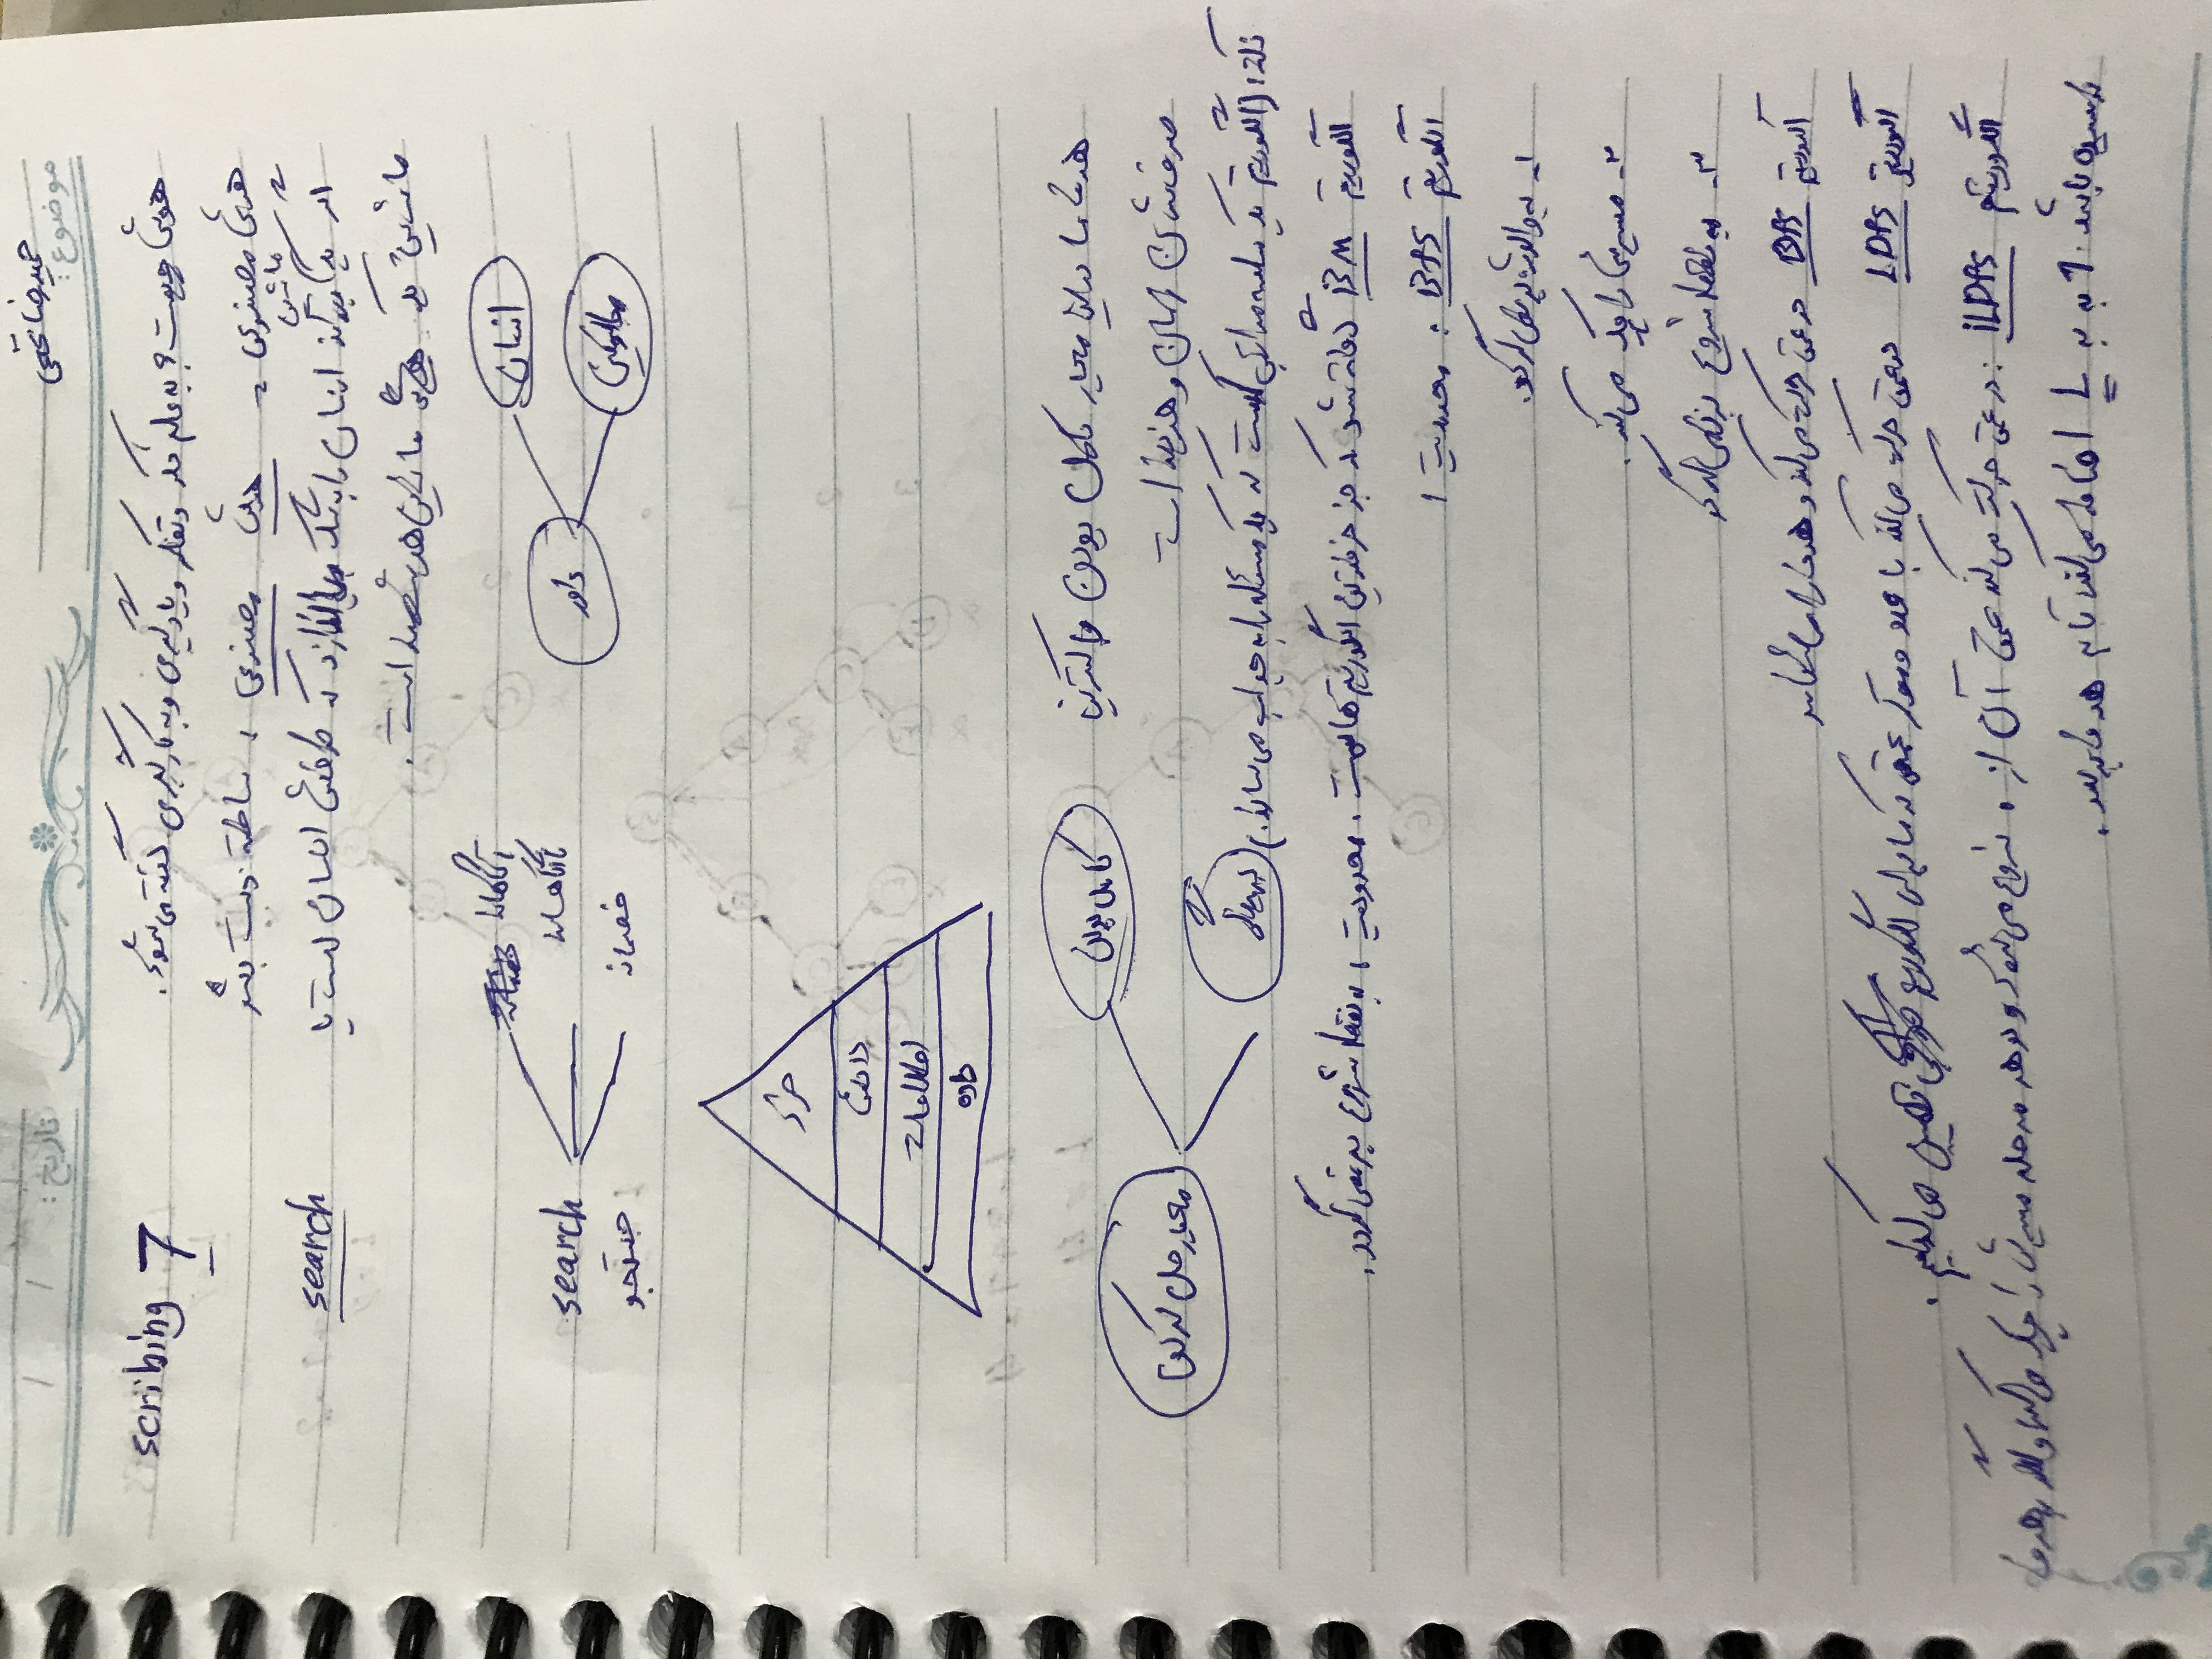 موضوع: حمیدرضا
تاریخ: / /
scribing 7
هوش چیست؟ به علم فکر و تفکر و یادگیری و به کارگیری گفته می‌شود.
هوش مصنوعی = هوش مصنوعی : ساخته دست بشر
اگر یک ماشین بتواند انسان را به شک بیاندازد که طرفش انسان است یا
search
ماشین، یک ماشین هوشمند است.
search
جستجو
آگاهانه
ناآگاهانه
خصمانه
داور
انسان
ماشین
خرد
دانش
اطلاعات
داده
هدف ما در این معیار کامل بودن و کمترین
صرف شدن زمان و هزینه است
معیار حل کردن
کامل بودن
بهینگی
نکته: (الگوریتم یک سلسه مراتبی است که یک مسئله را به جواب می‌رساند.)
الگوریتم BM گفته شد که جز خرفترین الگوریتم هاست. محدودیت: به نقطه شروع بر نمی‌گردد.
الگوریتم BFS : محدودیت:
۱- به والدش بر نمی گردد.
۲- مسیرش را چک می‌کند.
۳- به نقطه شروع بر نمی گردد
الگوریتم DFS در عمق حرکت می‌کند و هدف را می‌شناسد
الگوریتم LDFS در عمق حرکت می‌کند با عمق که ما برای الگوریتم تعیین می کنیم.
الگوریتم iLDFS : در عمق حرکت می‌کند عمق آن از ۰ شروع می‌شود و در هر مرحله مسیرش را چک می‌کند و اگر به هدف
نرسیده باشد 1 به L اضافه می‌کند تا به هدف برسد.